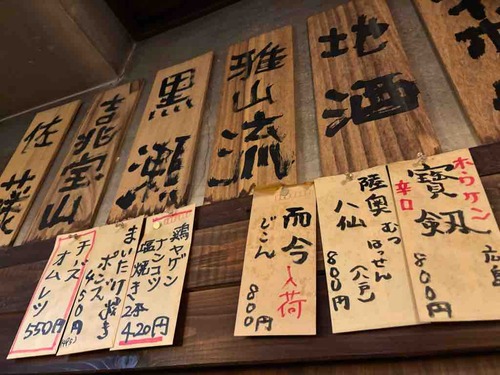 地酒
雅山流
黒瀬
吉兆宝山
佐藤
ホウケン
寳剱
辛口
広島
800円
陸奥 むつ
八仙 はっせん
(八戸)
800円
而今 入荷
じこん
800円
鶏ヤゲン
ナンコツ
塩焼き2本
420円
まいたけ
ポン酢焼き
450円
チーズ
オムレツ
550円